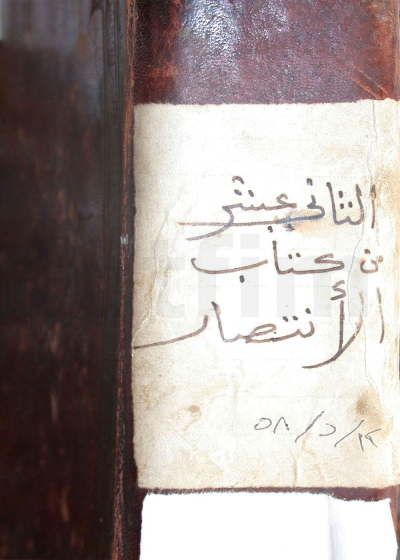 الثاني عشر
من كتاب
الأنتصار